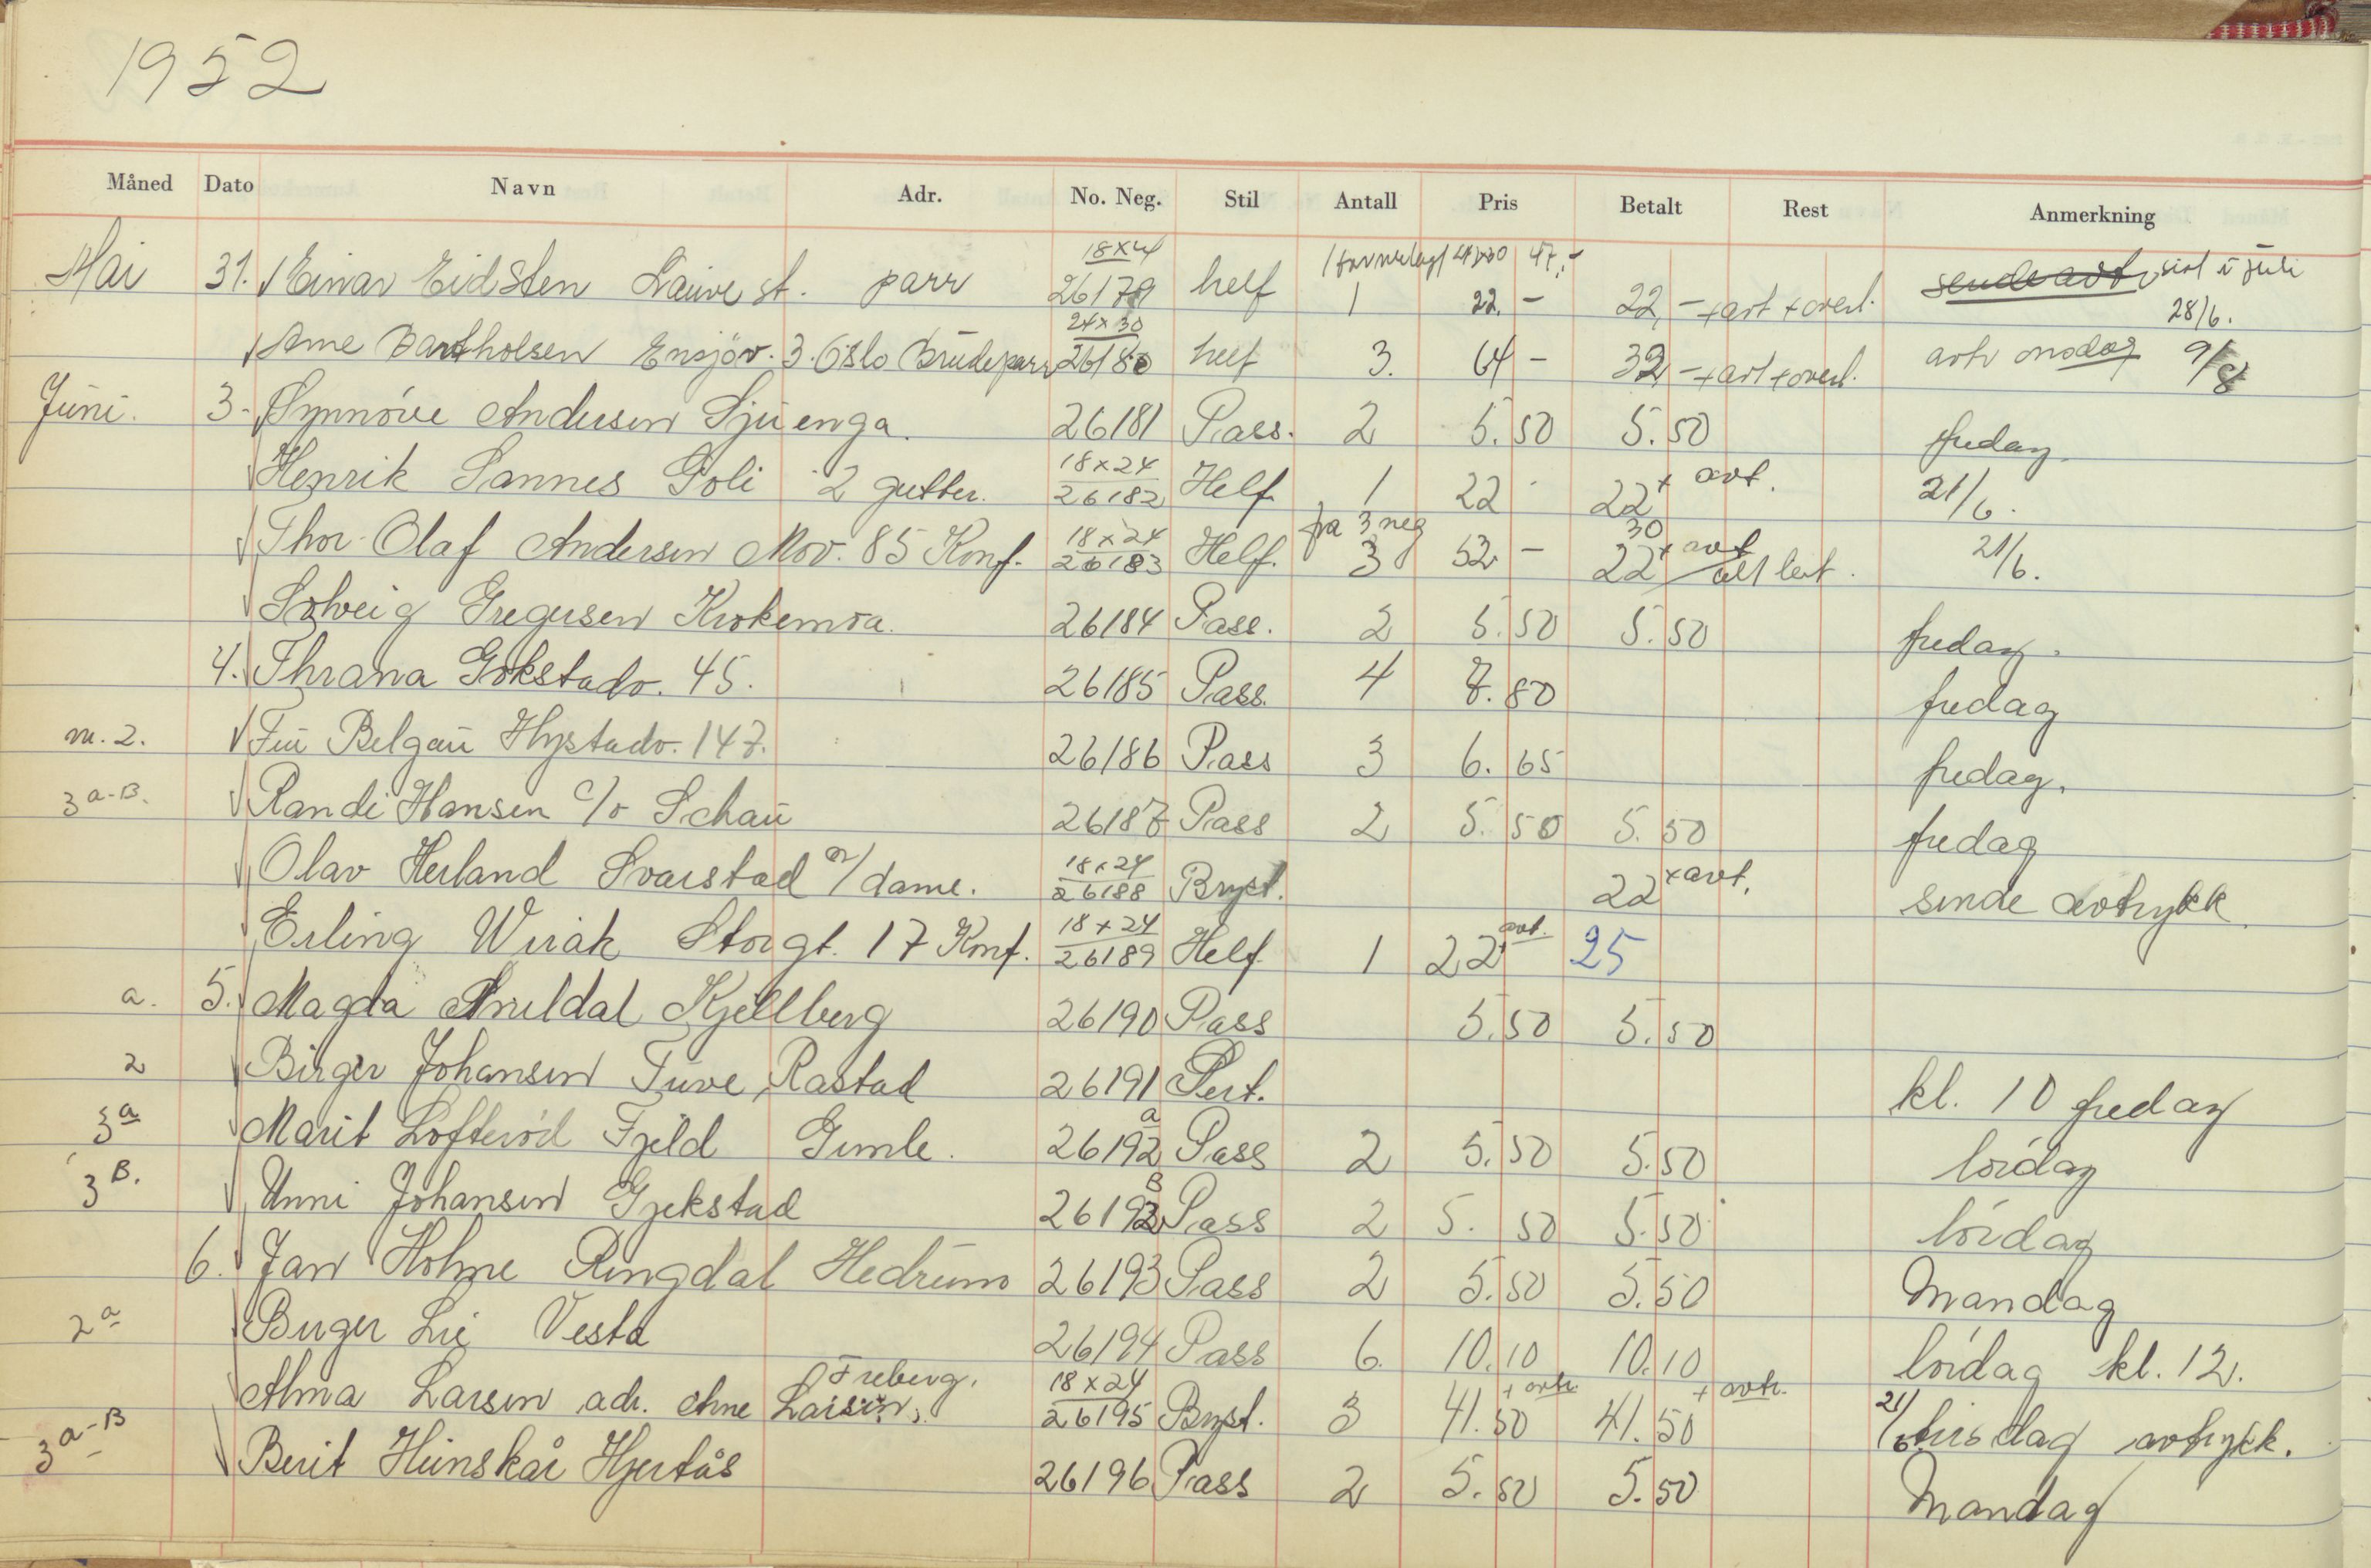 1952
Måned Dato Navn Adr. No. Neg. Stil Antall Pris Betalt Rest Anmerkning
Mai 31. Einar Eidsten Lauve st. parr 18x24 26179 helf 1 22.- 22,- + avt + overl. sist i juli 28/6.
Arne Bartholsen Ensjøv. 3. Oslo Brudeparr 24x30 26180 helf 3. 64 - 32,- + avt + overl. avtr onsdag 9/8
Juni. 3. Synnöve Andersen Sjuenga. 26181 Pass. 2 5.50 5.50 fredag.
Henrik Sannes Goli 2 gutter. 18x24 26182 Helf 1 22 22 + avt. 21/6.
Thor Olaf Andersen Mov. 85 Konf. 18x24 26183 Helf. fra 3 neg 3 52 - 30 22 + avt 21/6.
Solveig Gregersen Krokemoa. 26184 Pass. 2 5.50 5.50 fredag.
4. Thrana Gokstadv. 45. 26185 Pass. 4 7.80 fredag
m. 2. Fru Belgau Hystadv. 147. 26186 Pass 3 6.65 fredag.
3 a-B. Randi Hansen c/o Schau 26187 Pass 2 5.50 5.50 fredag
Olav Herland Svarstad m/dame. 18x24 26188 Bryst. 22 + avt. sende avtrykk
Erling Wirak Storgt. 17 Konf. 18x24 26189 Helf. 1 22 + avt. 25
a. 5. Magda Kjellberg 26190 Pass 5.50 5.50
2 Birger Johansen Tuve, Rastad 26191 Pert. kl. 10 fredag
3 a Marit Lofteröd Fjeld Gimle. 26192 a Pass 2 5.50 5.50 lördag
3 B. Unni Johansen Gjekstad 26192 B Pass 2 5.50 5.50 lördag
6. Jan Holme Ringdal Hedrum 26193 Pass 2 5.50 5.50 Mandag
2 a Birger Lie Vesta 26194 Pass 6. 10.10 10.10 lördag kl. 12.
Alma Larsen adr. Arne Larsen, Freberg. 18x24 26195 Bryst. 3 41.50 + avtr. 41.50 + avtr. 21/6 tirsdag avtrykk.
3 a-B Berit Heinskår Hjertås 26196 Pass 2 5.50 5.50 Mandag